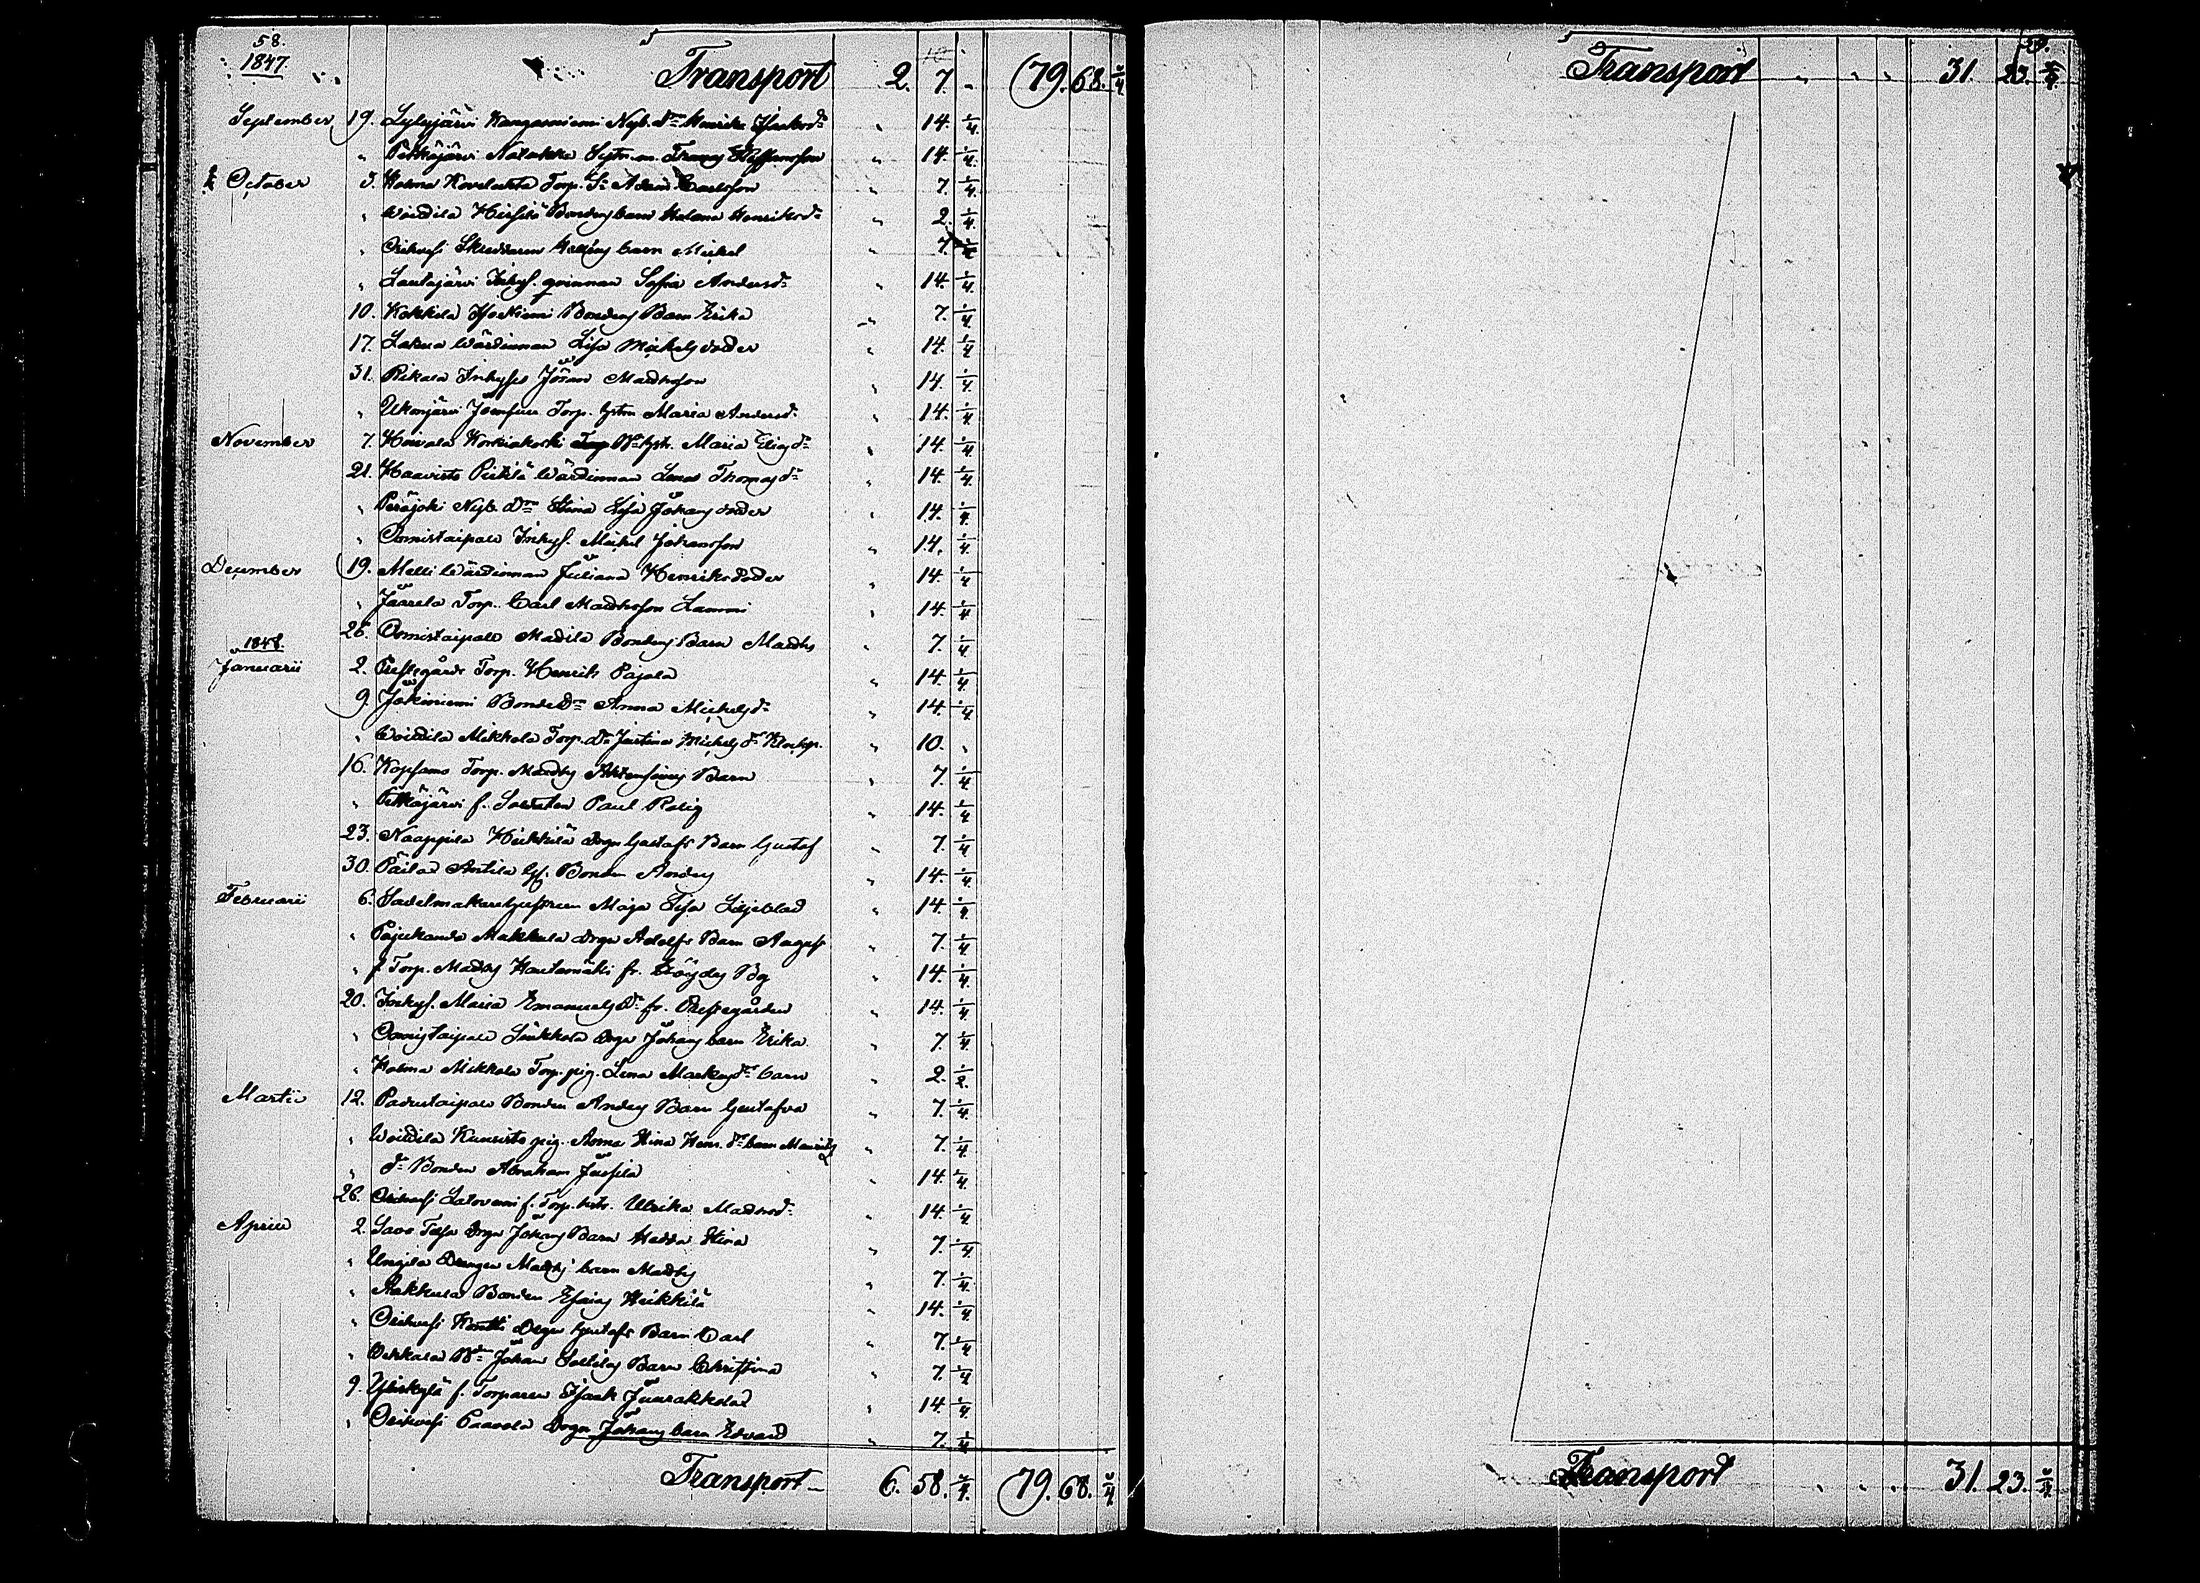 58.
1847.
Transport 2. 7. „ 79. 68. 3/4
September 19. Lylyjärvi Kangasniemi Nyb. dr Henrika Isaksdr „ 14. 1/4
„ Petkäjärvi Thomas Steffansson „ 14. 1/4
October 3. Holma Torp. Sn Adam Carlsson „ 7. 1/4
„ Woitila Hirsilä Bondens barn Helena Henriksdr „ 2. 1/4
„ Orihvesi Skreddaren barn Mickel „ 7. 1/4
„ Lautajärvi Inhys. qvinnan Sofia Andersdr „ 14. 1/4
10. Kokkila Isoniemi Bondens Barn Erika „ 7. 1/4
17. Lakua Wärdinnan Lisa Mickelsdoter „ 14. 1/4
31. Rekala Inhyses Jöran Madhsson „ 14. 1/4
„ Ukonjärvi Torp. hstru Maria Andersd. „ 14. 1/4
November 7. Hoivala Korkiakoski hstr. Maria Eliasdr „ 14. 1/4
21. Haavisto Wärdinnan Lena Thomasdr „ 14. 1/4
„ Peräjoki Nyb. dr Stina Lisa Johans doter „ 14. 1/4
„ Onnistaipale Inhys. Mickel Johansson „ 14. 1/4
December 19. Melli Wärdinnan Juliana Henriksdoter „ 14. 1/4
„ Jaarela Torp. Carl Madhsson Lammi „ 14. 1/4
26. Onnistaipale Madila Bondens Barn Madhs „ 7. 1/4
1848.
Januarii 2. Prestegårds Torp. Henrik Pajala „ 14. 1/4
9. Jokiniemi Bonde Dr Anna Mickelsdr „ 14. 1/4
„ Woitila Mikkola Torp. Dr Justina Mickelsdr Klockp. „ 10. „
16. Kopsamo Torp. Madhs Barn „ 7. 1/4
„ Petkäjärvi f. Soldaten Paul Rolig „ 14. 1/4
23. Naappila Heikkilä Drgn Gustafs Barn Gustaf „ 7. 1/4
30. Antila Bonden Anders „ 14. 1/4
Februarii 6. Sadelmakare hustrun Maja Lisa Liljeblad „ 14. 1/4
„ Pajukanda Makkula Drgn Adolfs Barn August „ 7. 1/4
„ f. Torp. Madhs Hautamäki fr. By „ 14. 1/4
20. Inhys. Maria Emanuelsdr fr. Prestegården „ 14. 1/4
„ Onnistaipale Sinkkola Drgn Johans barn Erika „ 7. 1/4
„ Holma Mikkola Torp. pig. Lena Markusdr barn „ 2. 1/2.
Martii 12. Padustaipale Bonden Anders Barn Gustafva „ 7. 1/4
„ Woitila Kuusisto pig. Anna Stina Henr. dr barn Maurits „ 7. 1/4
„ dr Bonden Abraham Jussila „ 14. 1/4
26. Orihvesi Latoniemi f. Torp. hstr. Ulrika Madhsdr „ 14. 1/4
Aprill 2. Savo Drgn Johans Barn Hedda Stina „ 7. 1/4
„ Uusila Drengen Madhs barn Madhs „ 7. 1/4
„ Akkula Bonden Esaias Heikkilä „ 14. 1/4
„ Orihvesi Kontti Drgn Gustafs Barn Carl „ 7. 1/4
„ Johan Barn Christina „ 7. 1/4
9. Yliskylä f. Torparen Isaak Juurakkola „ 14. 1/4
„ Orihvesi Paavola Drgn Johans barn Edvard „ 7. 1/4
Transport 6. 58. 3/4. 79. 68. 3/4
59.
Transport „ „ „ 31. 23. 3/4.
Transport „ „ „ 31. 23. 3/4.